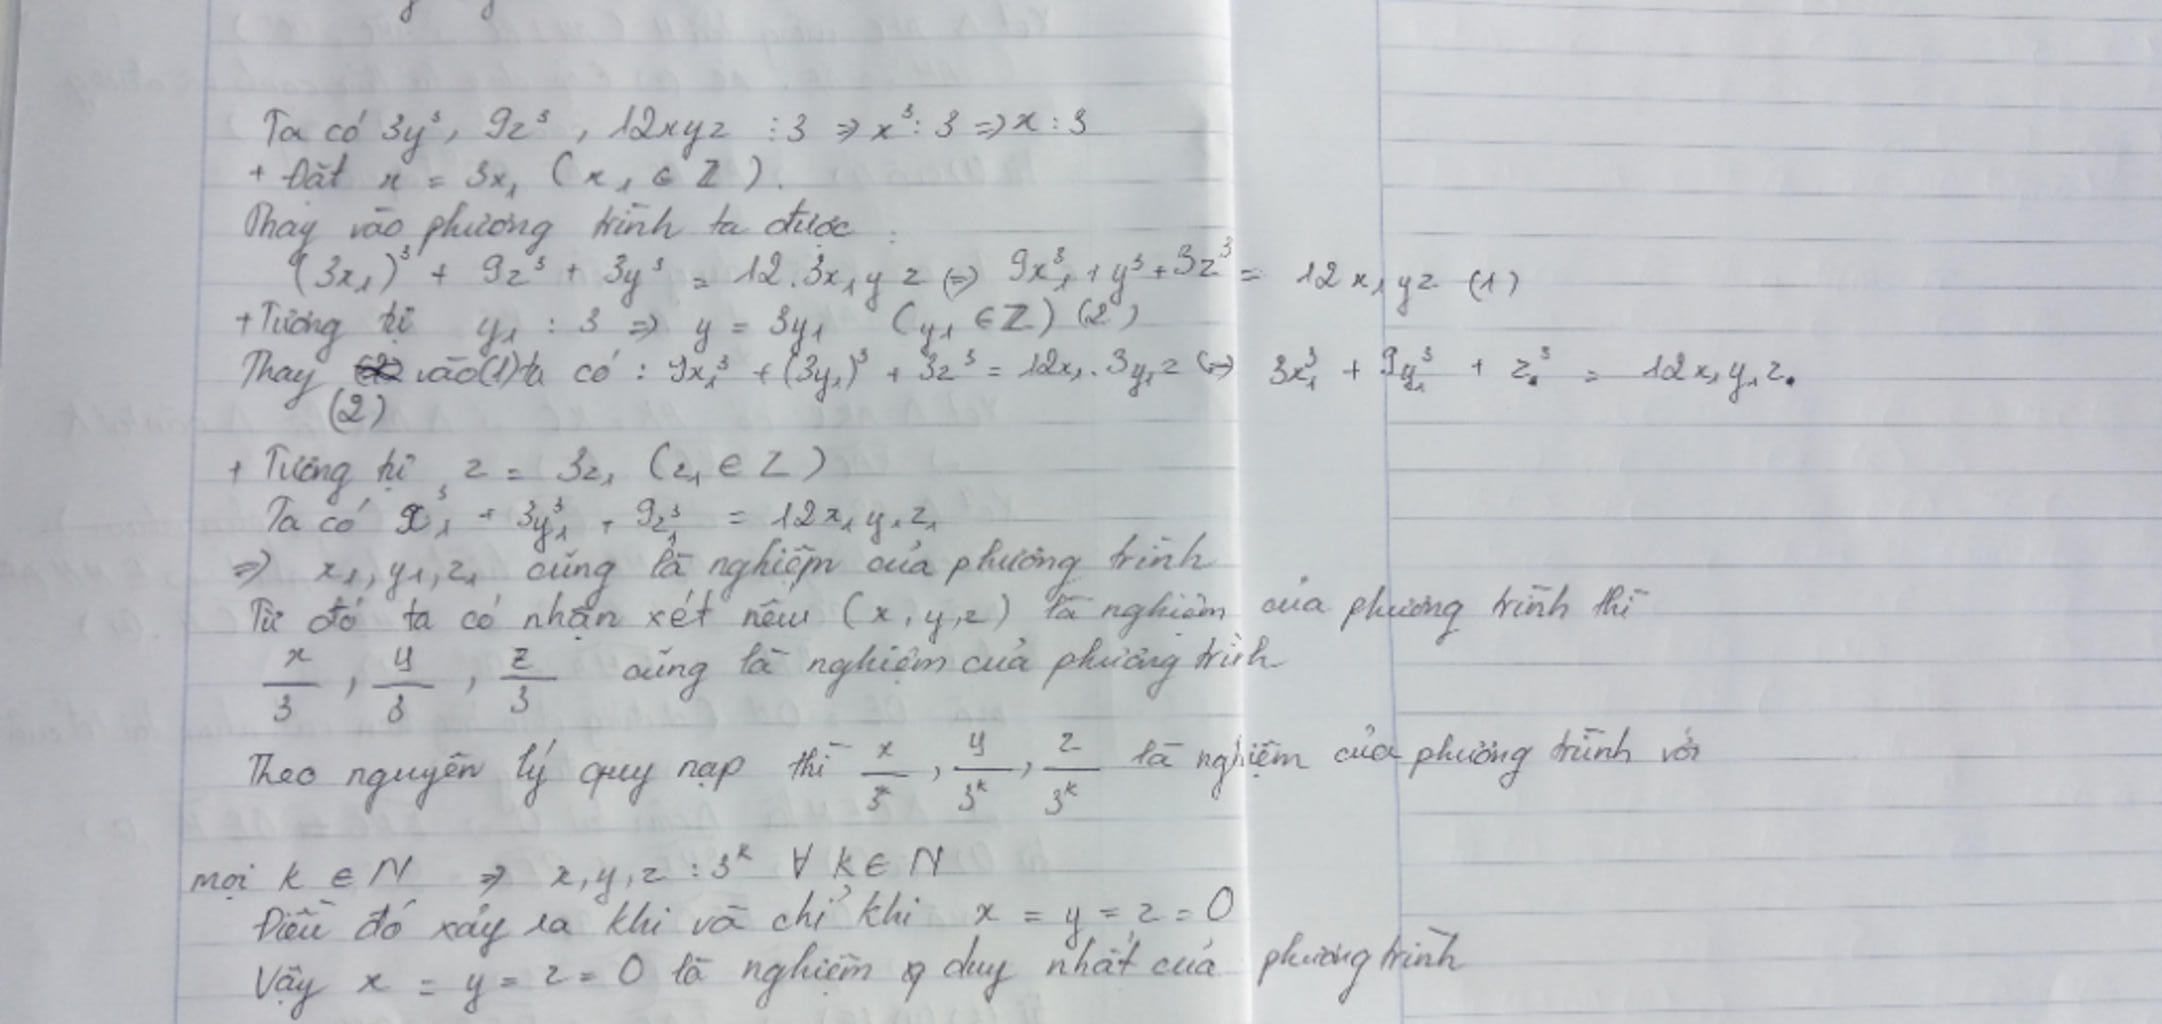 Ta có 3y³, 9z³, 12xyz ⋮ 3 => x³ ⋮ 3 => x ⋮ 3
+ Đặt x = 3x₁ (x₁ ∈ Z).
Thay vào phương trình ta được :
(3x₁)³ + 9z³ + 3y³ = 12.3x₁yz <=> 9x₁³ + y³ + 3z³ = 12x₁yz (1)
+ Tương tự y₁ ⋮ 3 => y = 3y₁ (y₁ ∈ Z) (2)
Thay (2) vào (1) ta có : 9x₁³ + (3y₁)³ + 3z³ = 12x₁.3y₁z <=> 3x₁³ + 9y₁³ + z³ = 12x₁y₁z.
+ Tương tự z = 3z₁ (z₁ ∈ Z)
Ta có x₁³ + 3y₁³ + 9z₁³ = 12x₁y₁z₁
=> x₁, y₁, z₁ cũng là nghiệm của phương trình
Từ đó ta có nhận xét nếu (x, y, z) là nghiệm của phương trình thì
x/3, y/3, z/3 cũng là nghiệm của phương trình
Theo nguyên lý quy nạp thì x/3ᵏ, y/3ᵏ, z/3ᵏ là nghiệm của phương trình với
mọi k ∈ N => x, y, z ⋮ 3ᵏ ∀ k ∈ N
Điều đó xảy ra khi và chỉ khi x = y = z = 0
Vậy x = y = z = 0 là nghiệm duy nhất của phương trình